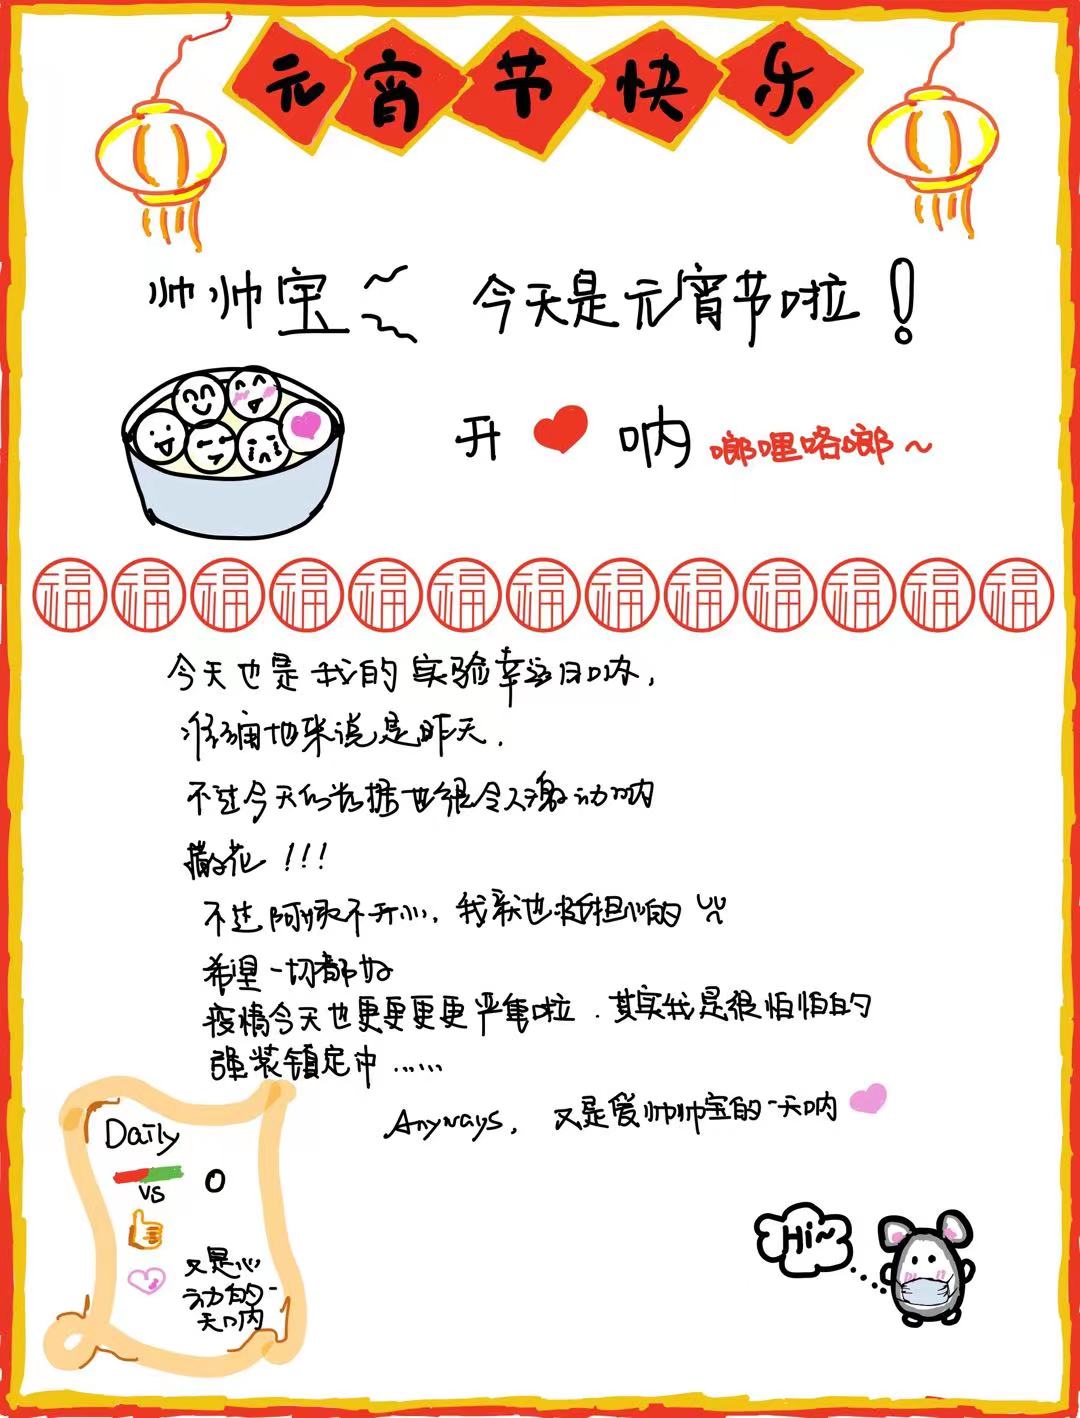 元宵节快乐
帅帅宝 今天是元宵节啦！
开❤呐 啷哩咯啷~
福福福福福福福福福福福福福
今天也是我的实验幸运日呐，
准确地来说是昨天.
不过今天的数据也很令人激动呐
撒花!!!
不过阿姨不开心，我就也挺担心的
希望一切都好
疫情今天也更更更更严重啦.其实我是很怕怕的
强装镇定中……
Anyways，又是爱帅帅宝的一天呐
Daily
VS 0
又是心
动的一
天呐
Hi~